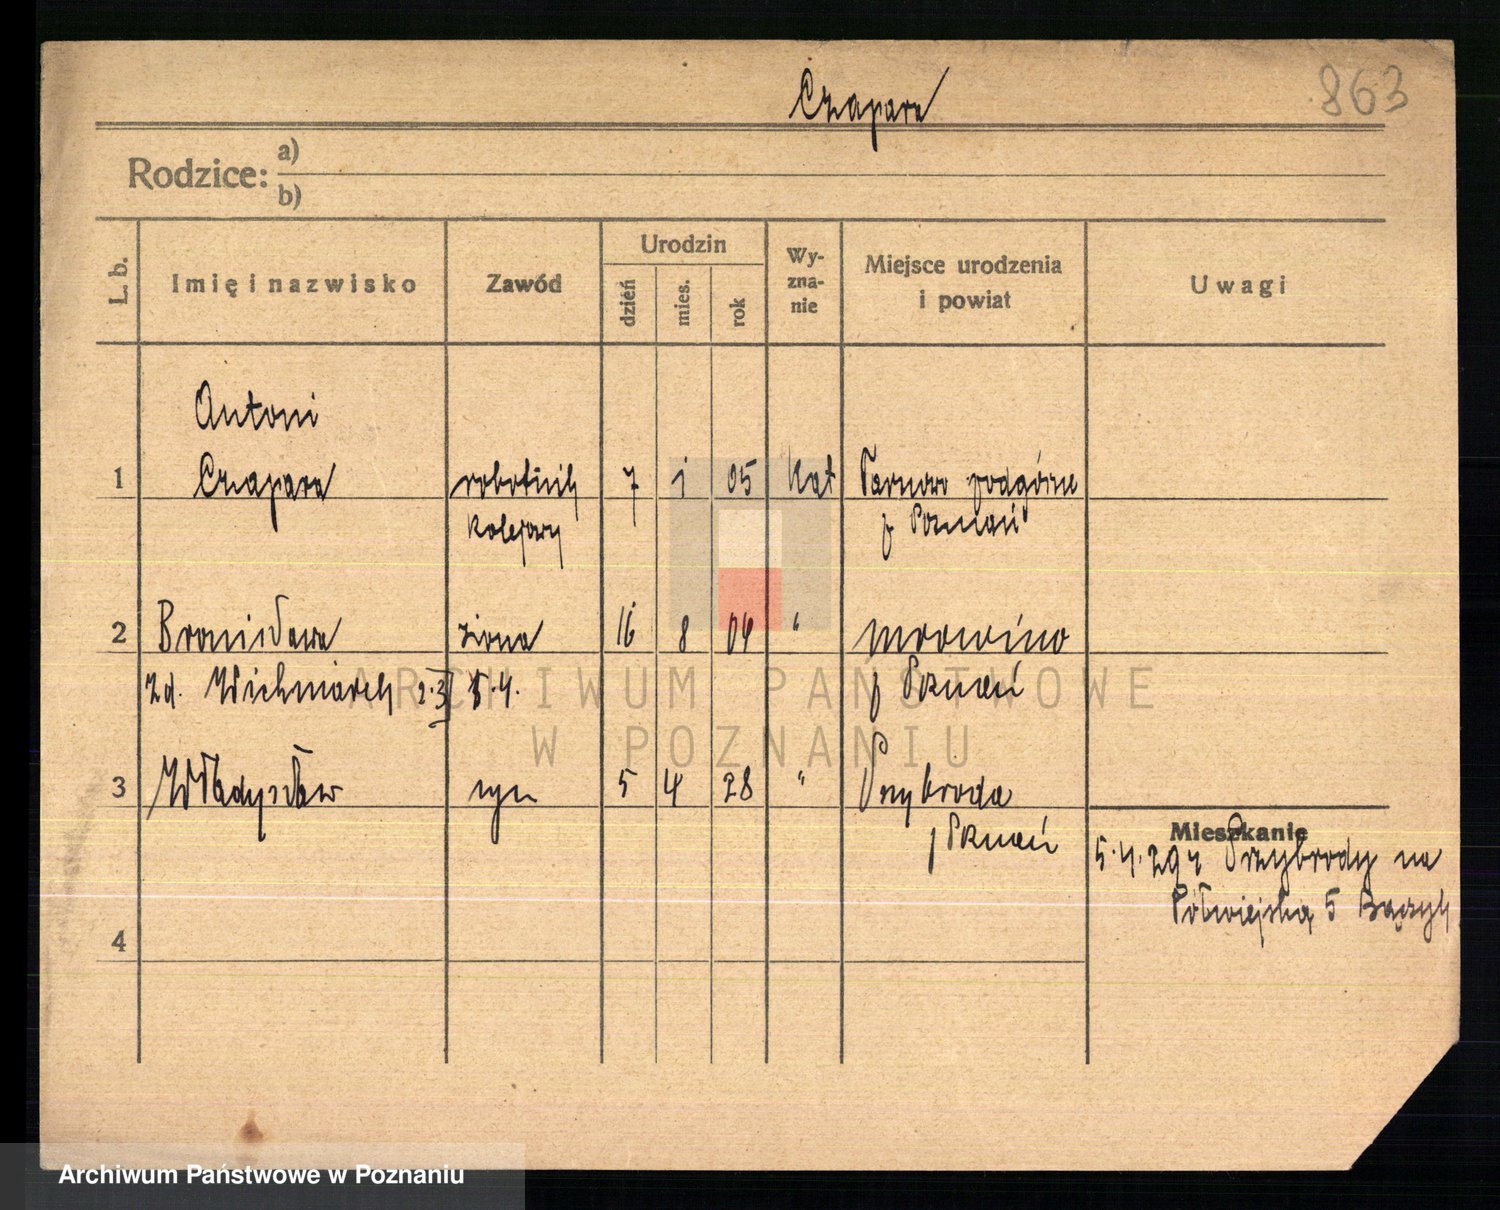 Czapara
863
Rodzice: a)
b)
L. b.
Imię i nazwisko
Zawód
Urodzin
dzień
mies.
rok
Wy-
zna-
nie
Miejsce urodzenia
i powiat
Uwagi
Antoni
1 Czapara robotnik 7 1 05 kat Tarnowo podgórne
kolejowy p Poznań
2 Bronisława żona 16 8 04 " Mrowino
zd. Wichniarek p Poznań
3 Władysław syn 5 4 28 " Przybroda
p Poznań
Mieszkanie
5.4.29 z Przybrody na
Półwiejską 5 Bączyk
4
ARCHIWUM PAŃSTWOWE
W POZNANIU
Archiwum Państwowe w Poznaniu